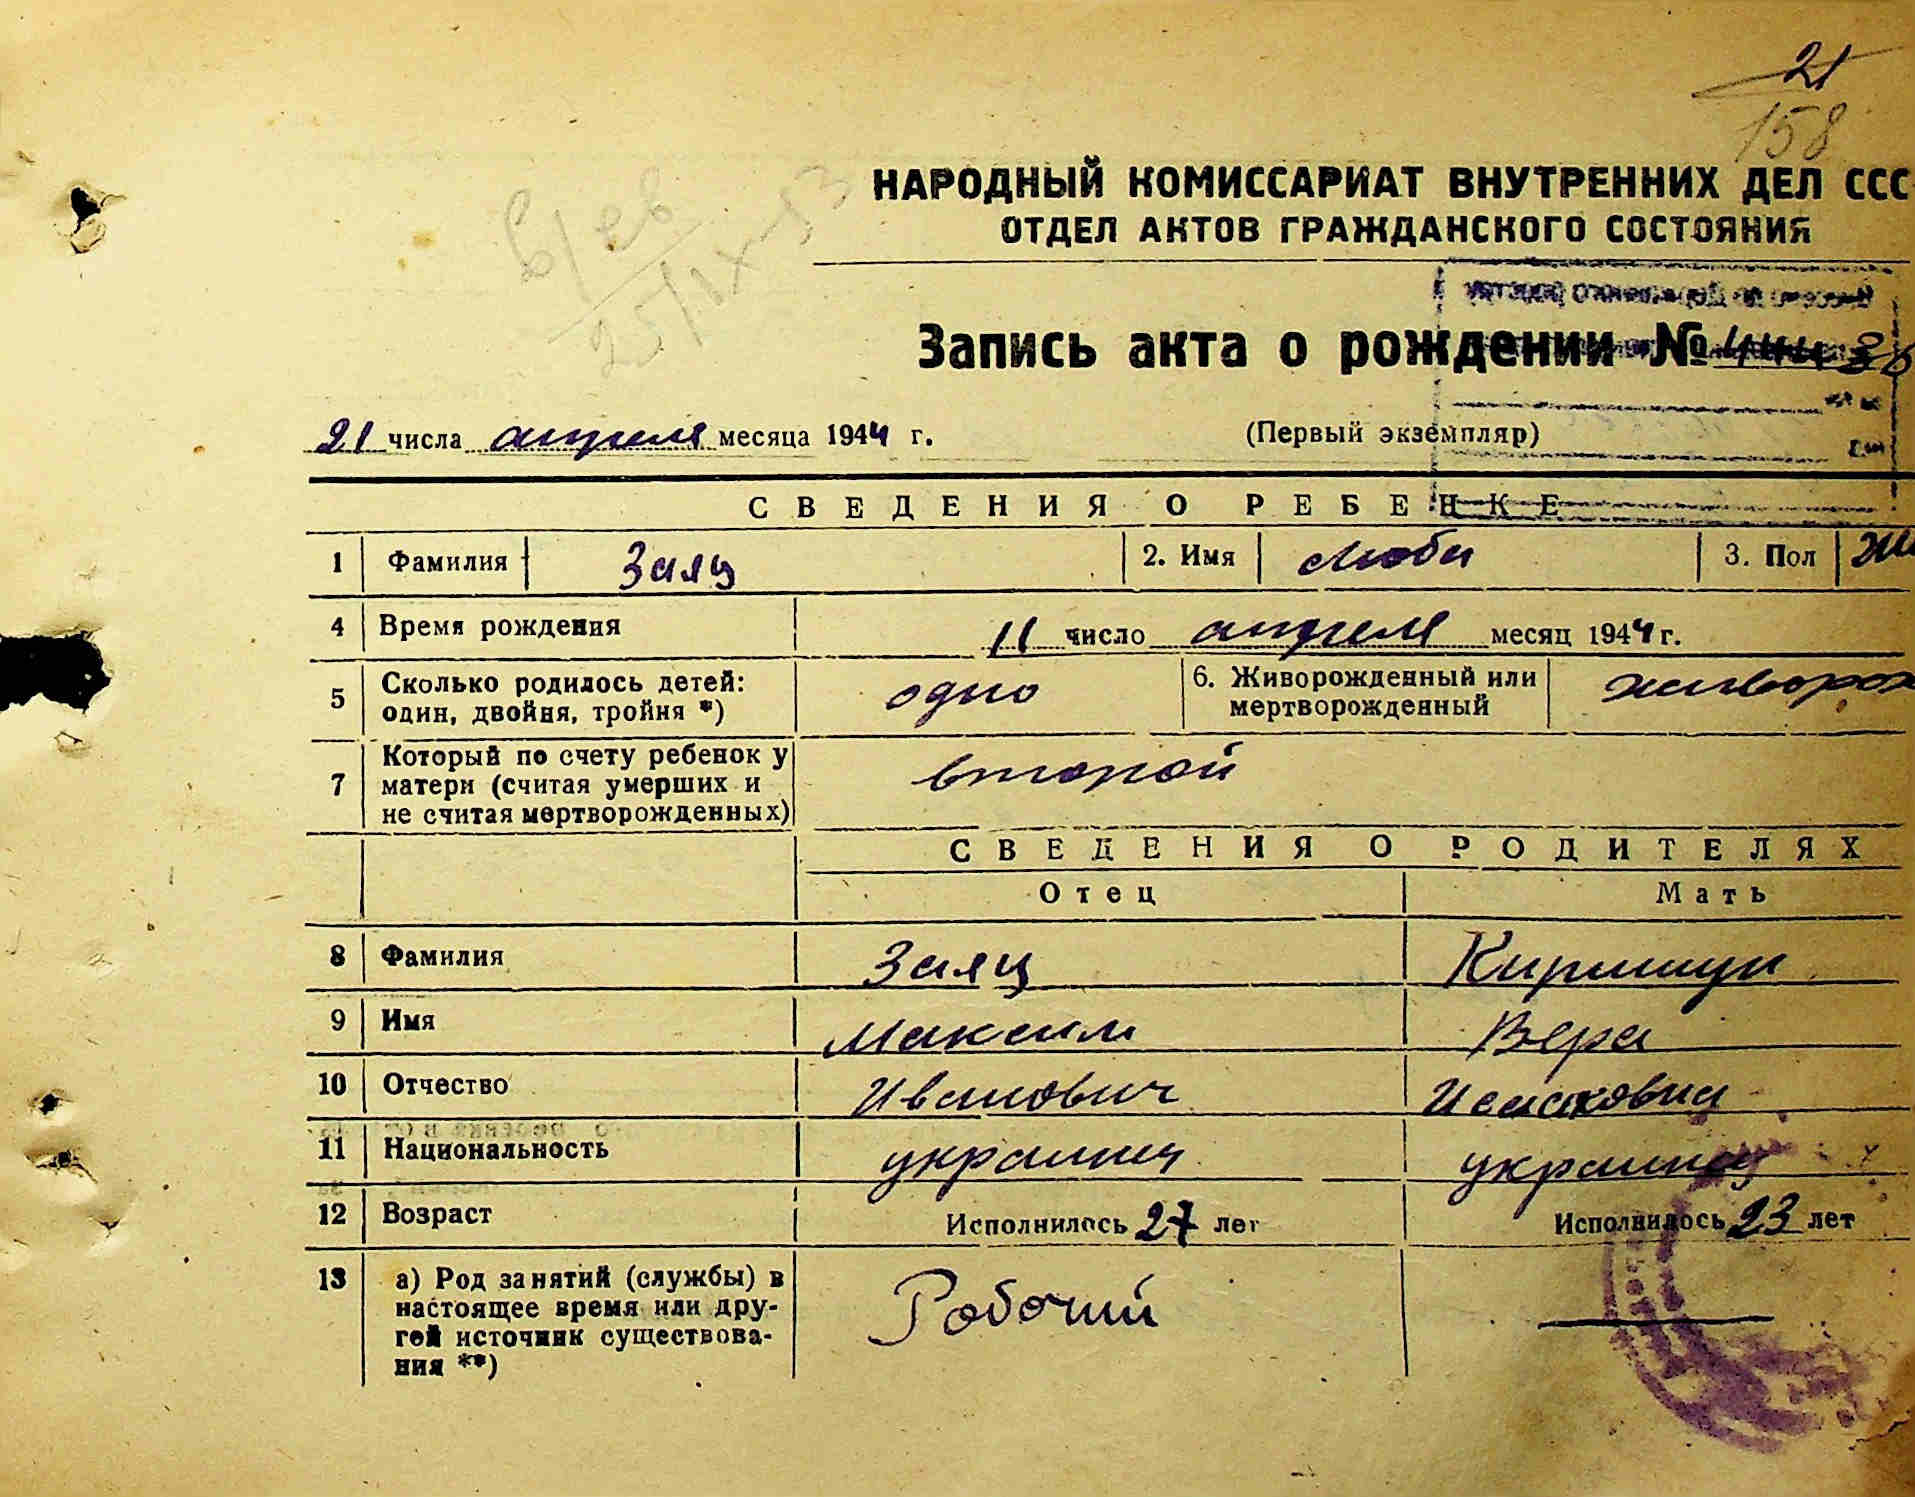 21
158
НАРОДНЫЙ КОМИССАРИАТ ВНУТРЕННИХ ДЕЛ ССС
ОТДЕЛ АКТОВ ГРАЖДАНСКОГО СОСТОЯНИЯ
Запись акта о рождении №
21 числа апреля месяца 1944 г. (Первый экземпляр)
СВЕДЕНИЯ О РЕБЕНКЕ
1 Фамилия Заяц 2. Имя Люба 3. Пол
4 Время рождения 11 число апреля месяц 1944 г.
5 Сколько родилось детей: один, двойня, тройня *) одно 6. Живорожденный или мертворожденный живорож
7 Который по счету ребенок у матери (считая умерших и не считая мертворожденных) второй
СВЕДЕНИЯ О РОДИТЕЛЯХ
Отец Мать
8 Фамилия Заяц
9 Имя Максим Вера
10 Отчество Иванович Исааковна
11 Национальность украинец украинка
12 Возраст Исполнилось 27 лет Исполнилось 23 лет
13 а) Род занятий (службы) в настоящее время или дру-
гой источник существова-
ния **) Рабочий